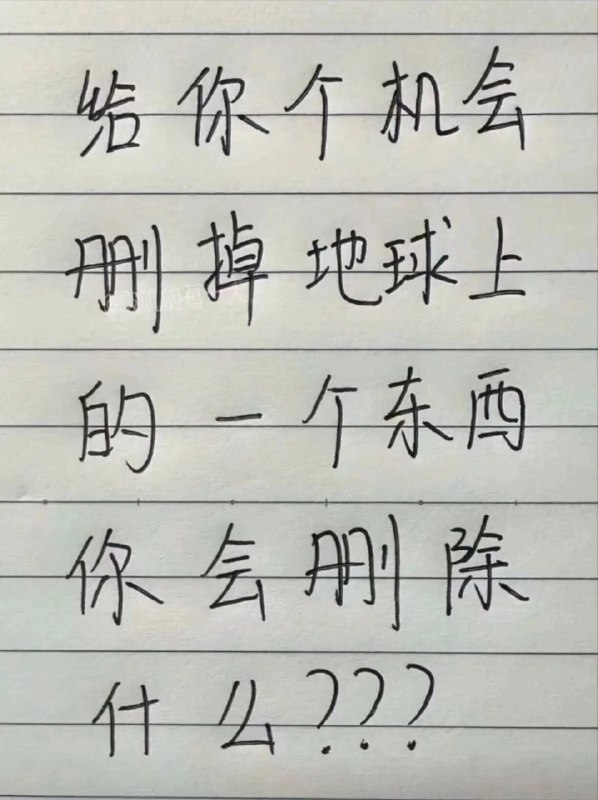 给你个机会
删掉地球上
的一个东西
你会删除
什么???